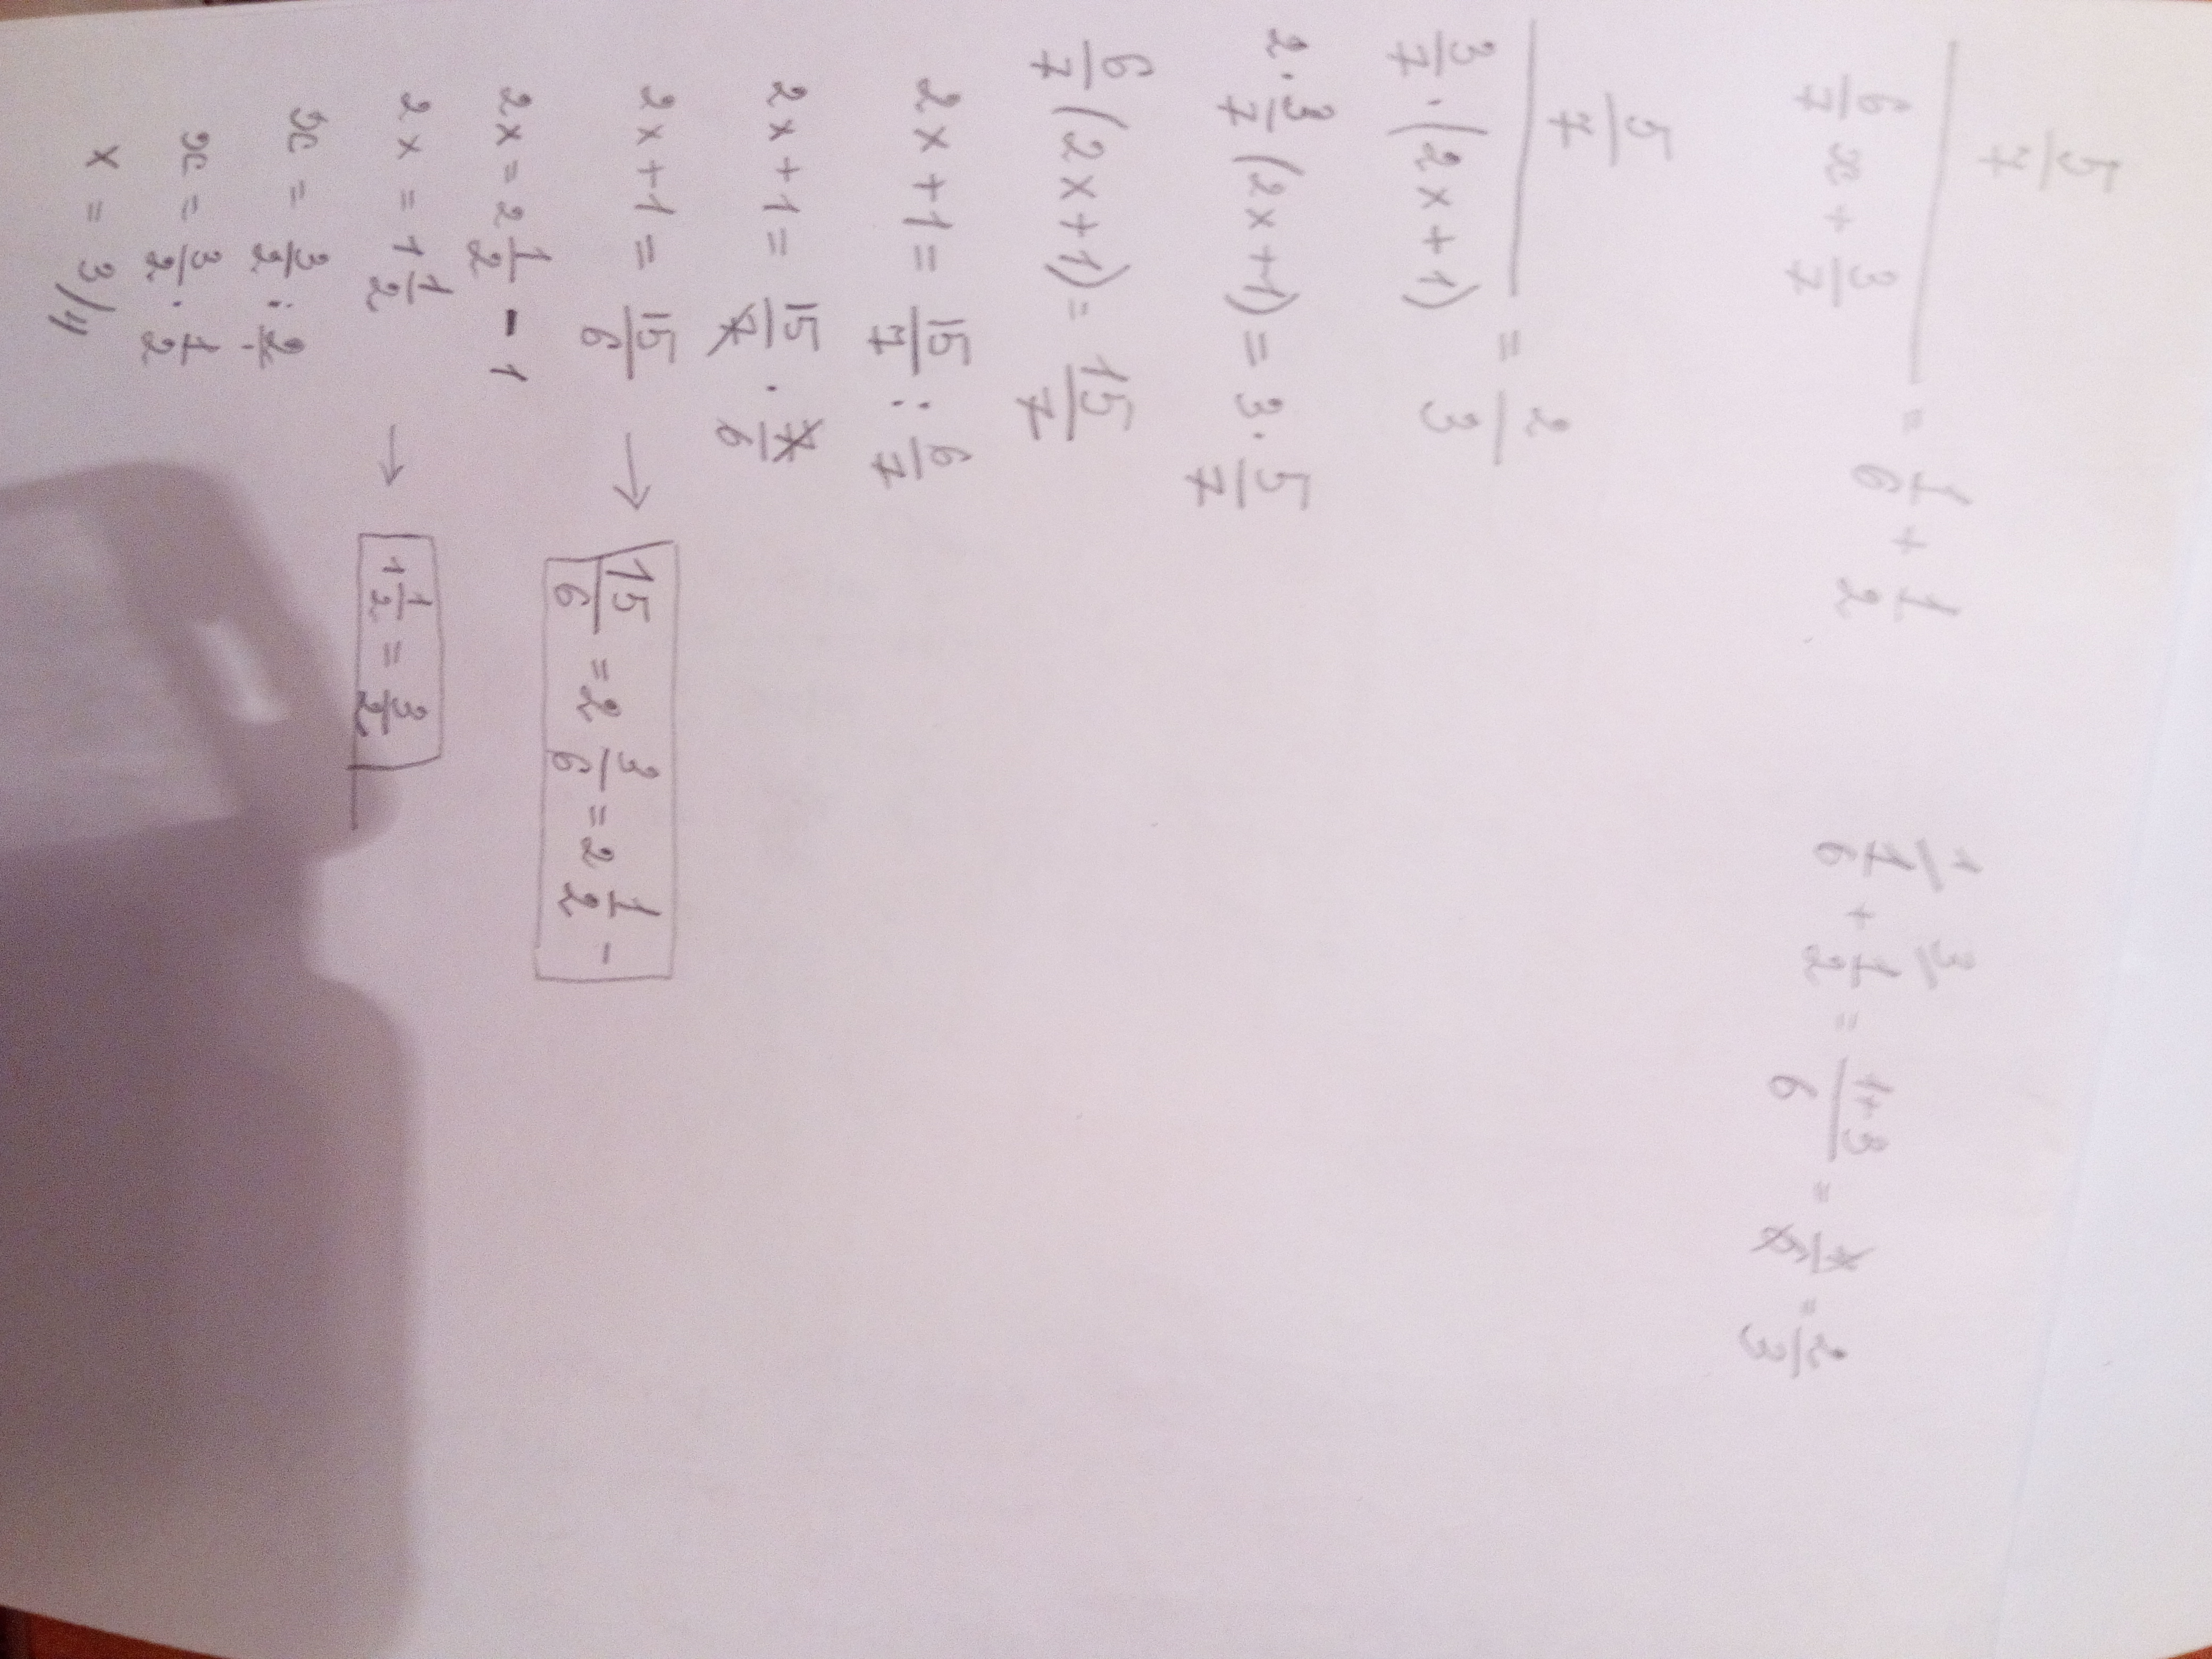 5/7 / (6/7 x + 3/7) = 1/6 + 1/2
1/6 + 1/2 = (1+3)/6 = 4/6 = 2/3
5/7 / (3/7 · (2x+1)) = 2/3
2 · 3/7 (2x+1) = 3 · 5/7
6/7 (2x+1) = 15/7
2x+1 = 15/7 : 6/7
2x+1 = 15/7 · 7/6
2x+1 = 15/6 → 15/6 = 2 3/6 = 2 1/2 -
2x = 2 1/2 - 1
2x = 1 1/2 → 1 1/2 = 3/2
x = 3/2 : 2
x = 3/2 · 1/2
x = 3/4